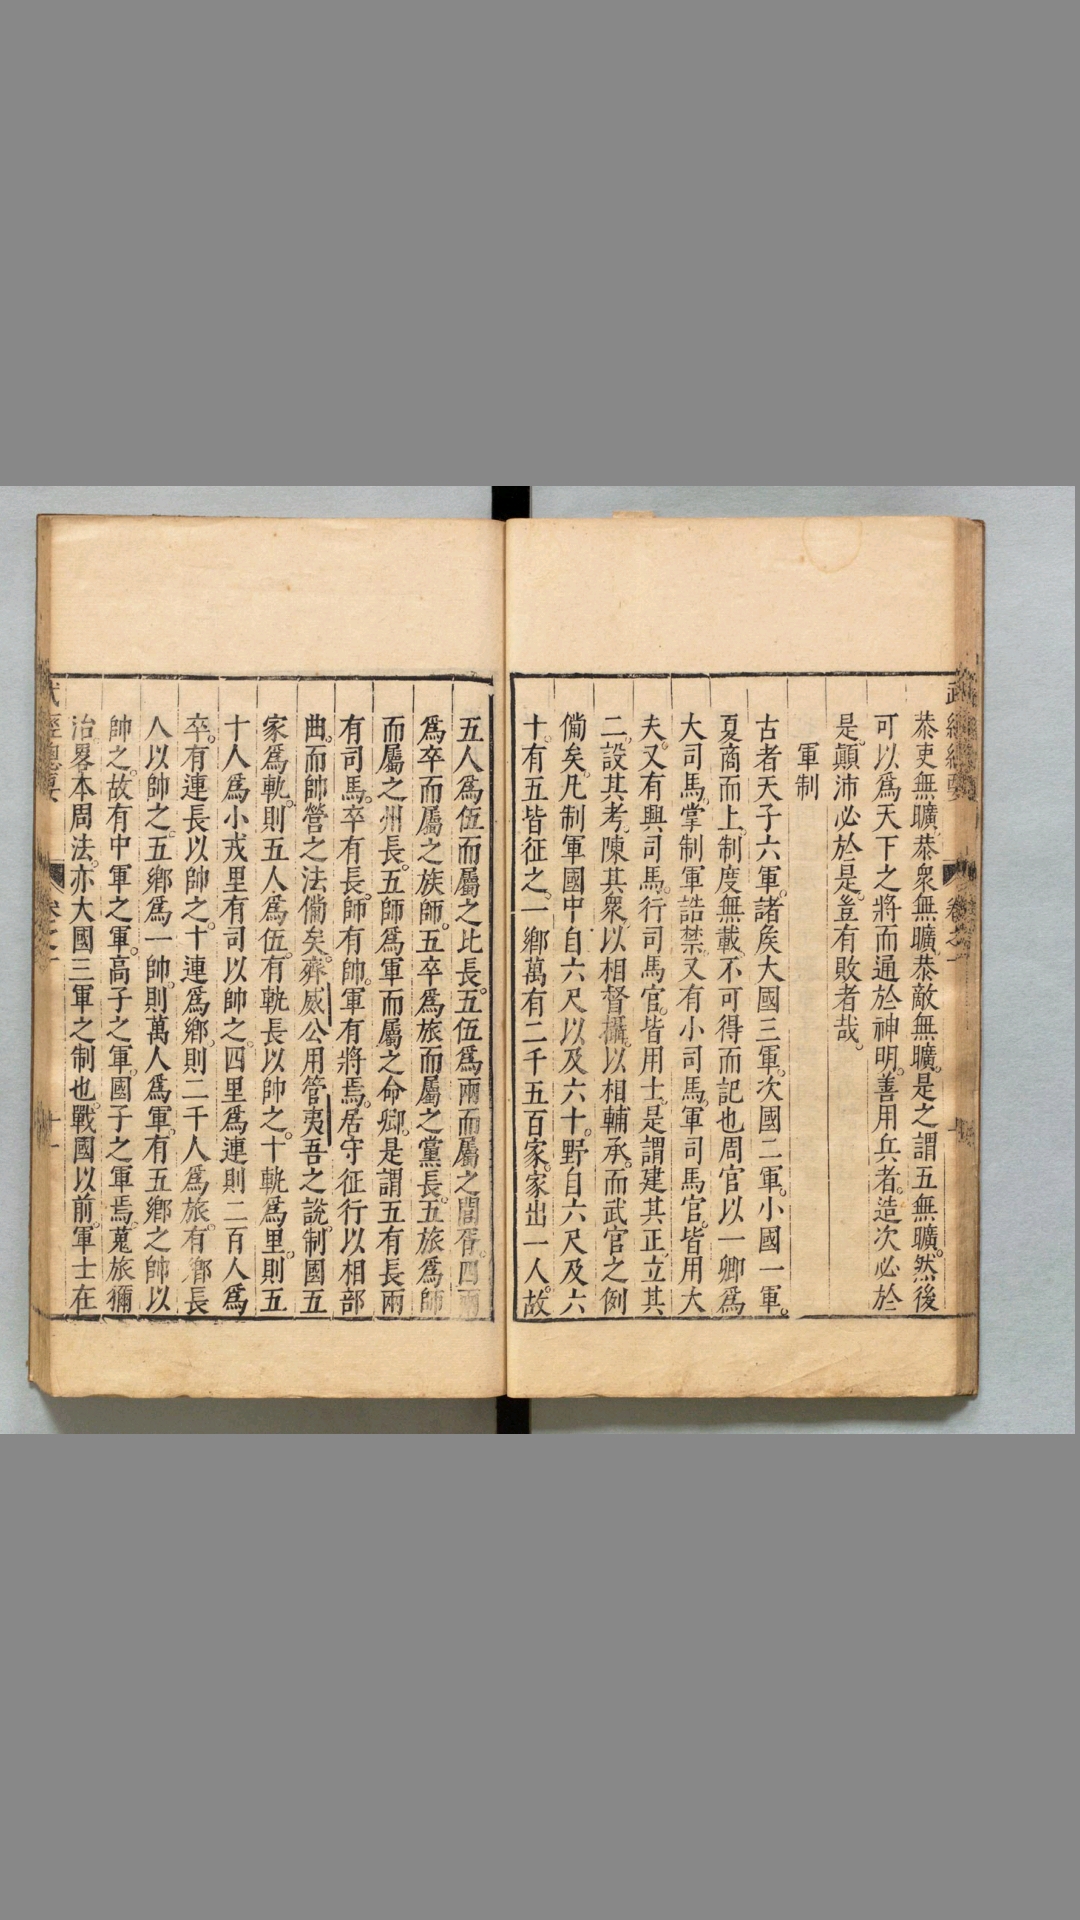 恭吏無曠恭衆無曠恭敵無曠。是之謂五無曠。然後
可以爲天下之將而通於神明。善用兵者。造次必於
是。顛沛必於是。豈有敗者哉。
軍制
古者天子六軍。諸矦大國三軍。次國二軍。小國一軍。
夏商而上。制度無載。不可得而記也周官以一卿爲
大司馬。掌制軍誥禁。又有小司馬。軍司馬官。皆用大
夫。又有輿司馬。行司馬官。皆用士。是謂建其正。立其
二。設其考。陳其衆。以相督攝。以相輔承。而武官之例
備矣。凡制軍國中自六尺以及六十。野自六尺及六
十。有五皆征之。一鄉萬有二千五百家。家出一人。故
五人爲伍而屬之比長。五伍爲兩而屬之閭胥。四兩
爲卒而屬之族師。五卒爲旅而屬之黨長。五旅爲師
而屬之州長。五師爲軍而屬之命卿。是謂五有長兩
有司馬。卒有長。師有帥。軍有將焉。居守征行以相部
曲。而帥營之法備矣。齊威公用管夷吾之説。制國五
家爲軌。則五人爲伍。有軌長以帥之。十軌爲里。則五
十人爲小戎里有司以帥之。四里爲連則二百人爲
卒。有連長以帥之。十連爲鄉。則二千人爲旅。有鄉長
人以帥之。五鄉爲一帥。則萬人爲軍。有五鄉之帥以
帥之。故有中軍之軍。高子之軍。國子之軍焉。蒐旅獮
治畧本周法。亦大國三軍之制也。戰國以前。軍士在
武經總要
卷之一
十一